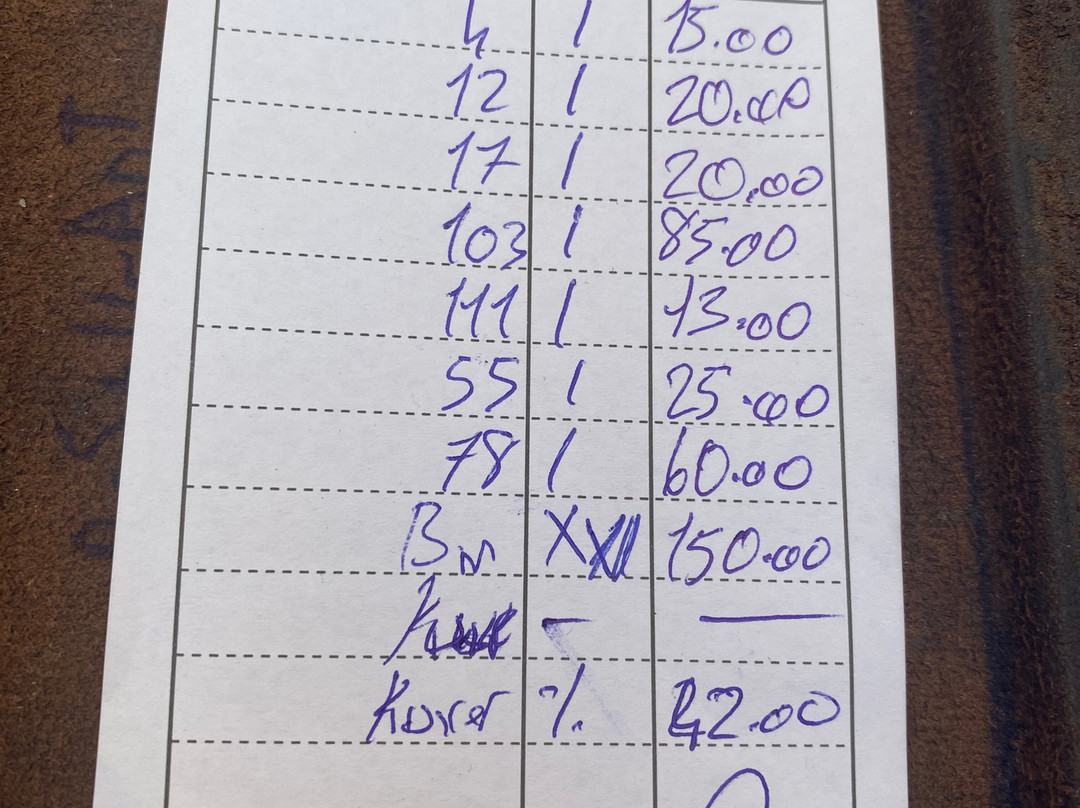 4 1 15.00
12 1 20.00
17 1 20.00
103 1 85.00
111 1 13.00
55 1 25.00
78 1 60.00
150.00
— —
Kuver % 42.00